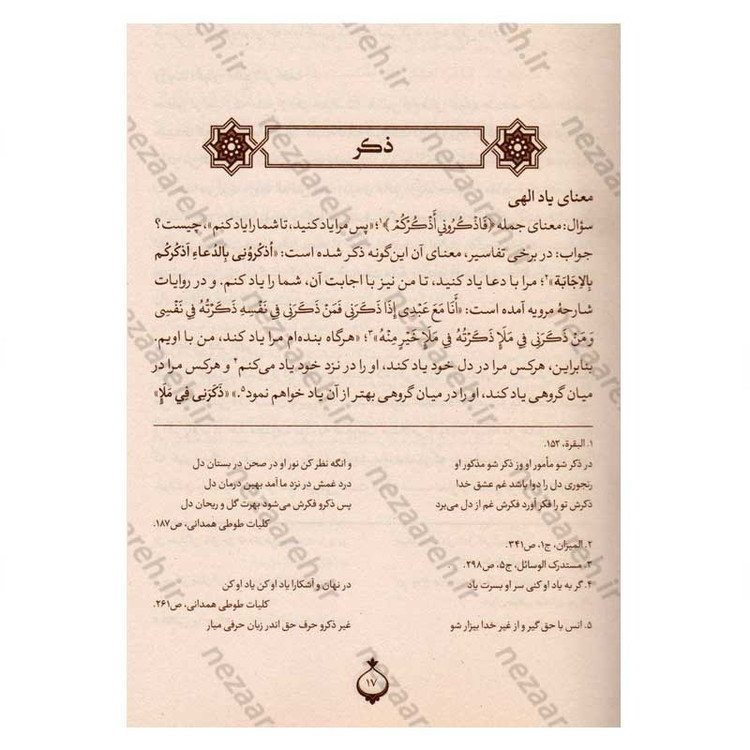 ذکر
معنای یاد الهی
سؤال: معنای جمله ﴿فَاذْكُرُونِي أَذْكُرْكُمْ﴾۱؛ «پس مرا یاد کنید، تا شما را یاد کنم»، چیست؟
جواب: در برخی تفاسیر، معنای آن این‌گونه ذکر شده است: «اُذکُرُونی بِالدُعاءِ اَذکُرکُم
بِالاِجَابَة»۲؛ مرا با دعا یاد کنید، تا من نیز با اجابت آن، شما را یاد کنم. و در روایات
شارحهٔ مرویه آمده است: «أَنَا مَعَ عَبْدِی إِذَا ذَكَرَنِي فَمَنْ ذَكَرَنِي فِي نَفْسِهِ ذَكَرْتُهُ فِي نَفْسِی
وَ مَنْ ذَكَرَنِي فِي مَلَإٍ ذَكَرْتُهُ فِي مَلَإٍ خَيْرٍ مِنْهُ»۳؛ «هرگاه بنده‌ام مرا یاد کند، من با اویم.
بنابراین، هرکس مرا در دل خود یاد کند، او را در نزد خود یاد می‌کنم۴ و هرکس مرا در
میان گروهی یاد کند، او را در میان گروهی بهتر از آن یاد خواهم نمود۵.» «ذَكَرَنِی فِي مَلَإٍ»
۱. البقرة، ۱۵۲.
در ذکر شو مأمور او وز ذکر شو مذکور او و انگه نظر کن نور او در صحن در بستان دل
رنجوری دل را دوا باشد غم عشق خدا درد غمش در نزد ما آمد بهین درمان دل
ذکرش تو را فکر آورد فکرش غم از دل می‌برد پس ذکر و فکرش می‌شود بهرت گل و ریحان دل
کلیات طوطی همدانی، ص۱۸۷.
۲. المیزان، ج۱، ص۳۴۱.
۳. مستدرک الوسائل، ج۵، ص۲۹۸.
۴. گر به یاد او کنی سر او بسرت یاد در نهان و آشکارا یاد او کن یاد او کن
کلیات طوطی همدانی، ص۲۶۱.
۵. انس با حق گیر و از غیر خدا بیزار شو غیر ذکر و حرف حق اندر زبان حرفی میار
۱۷
nezaareh.ir